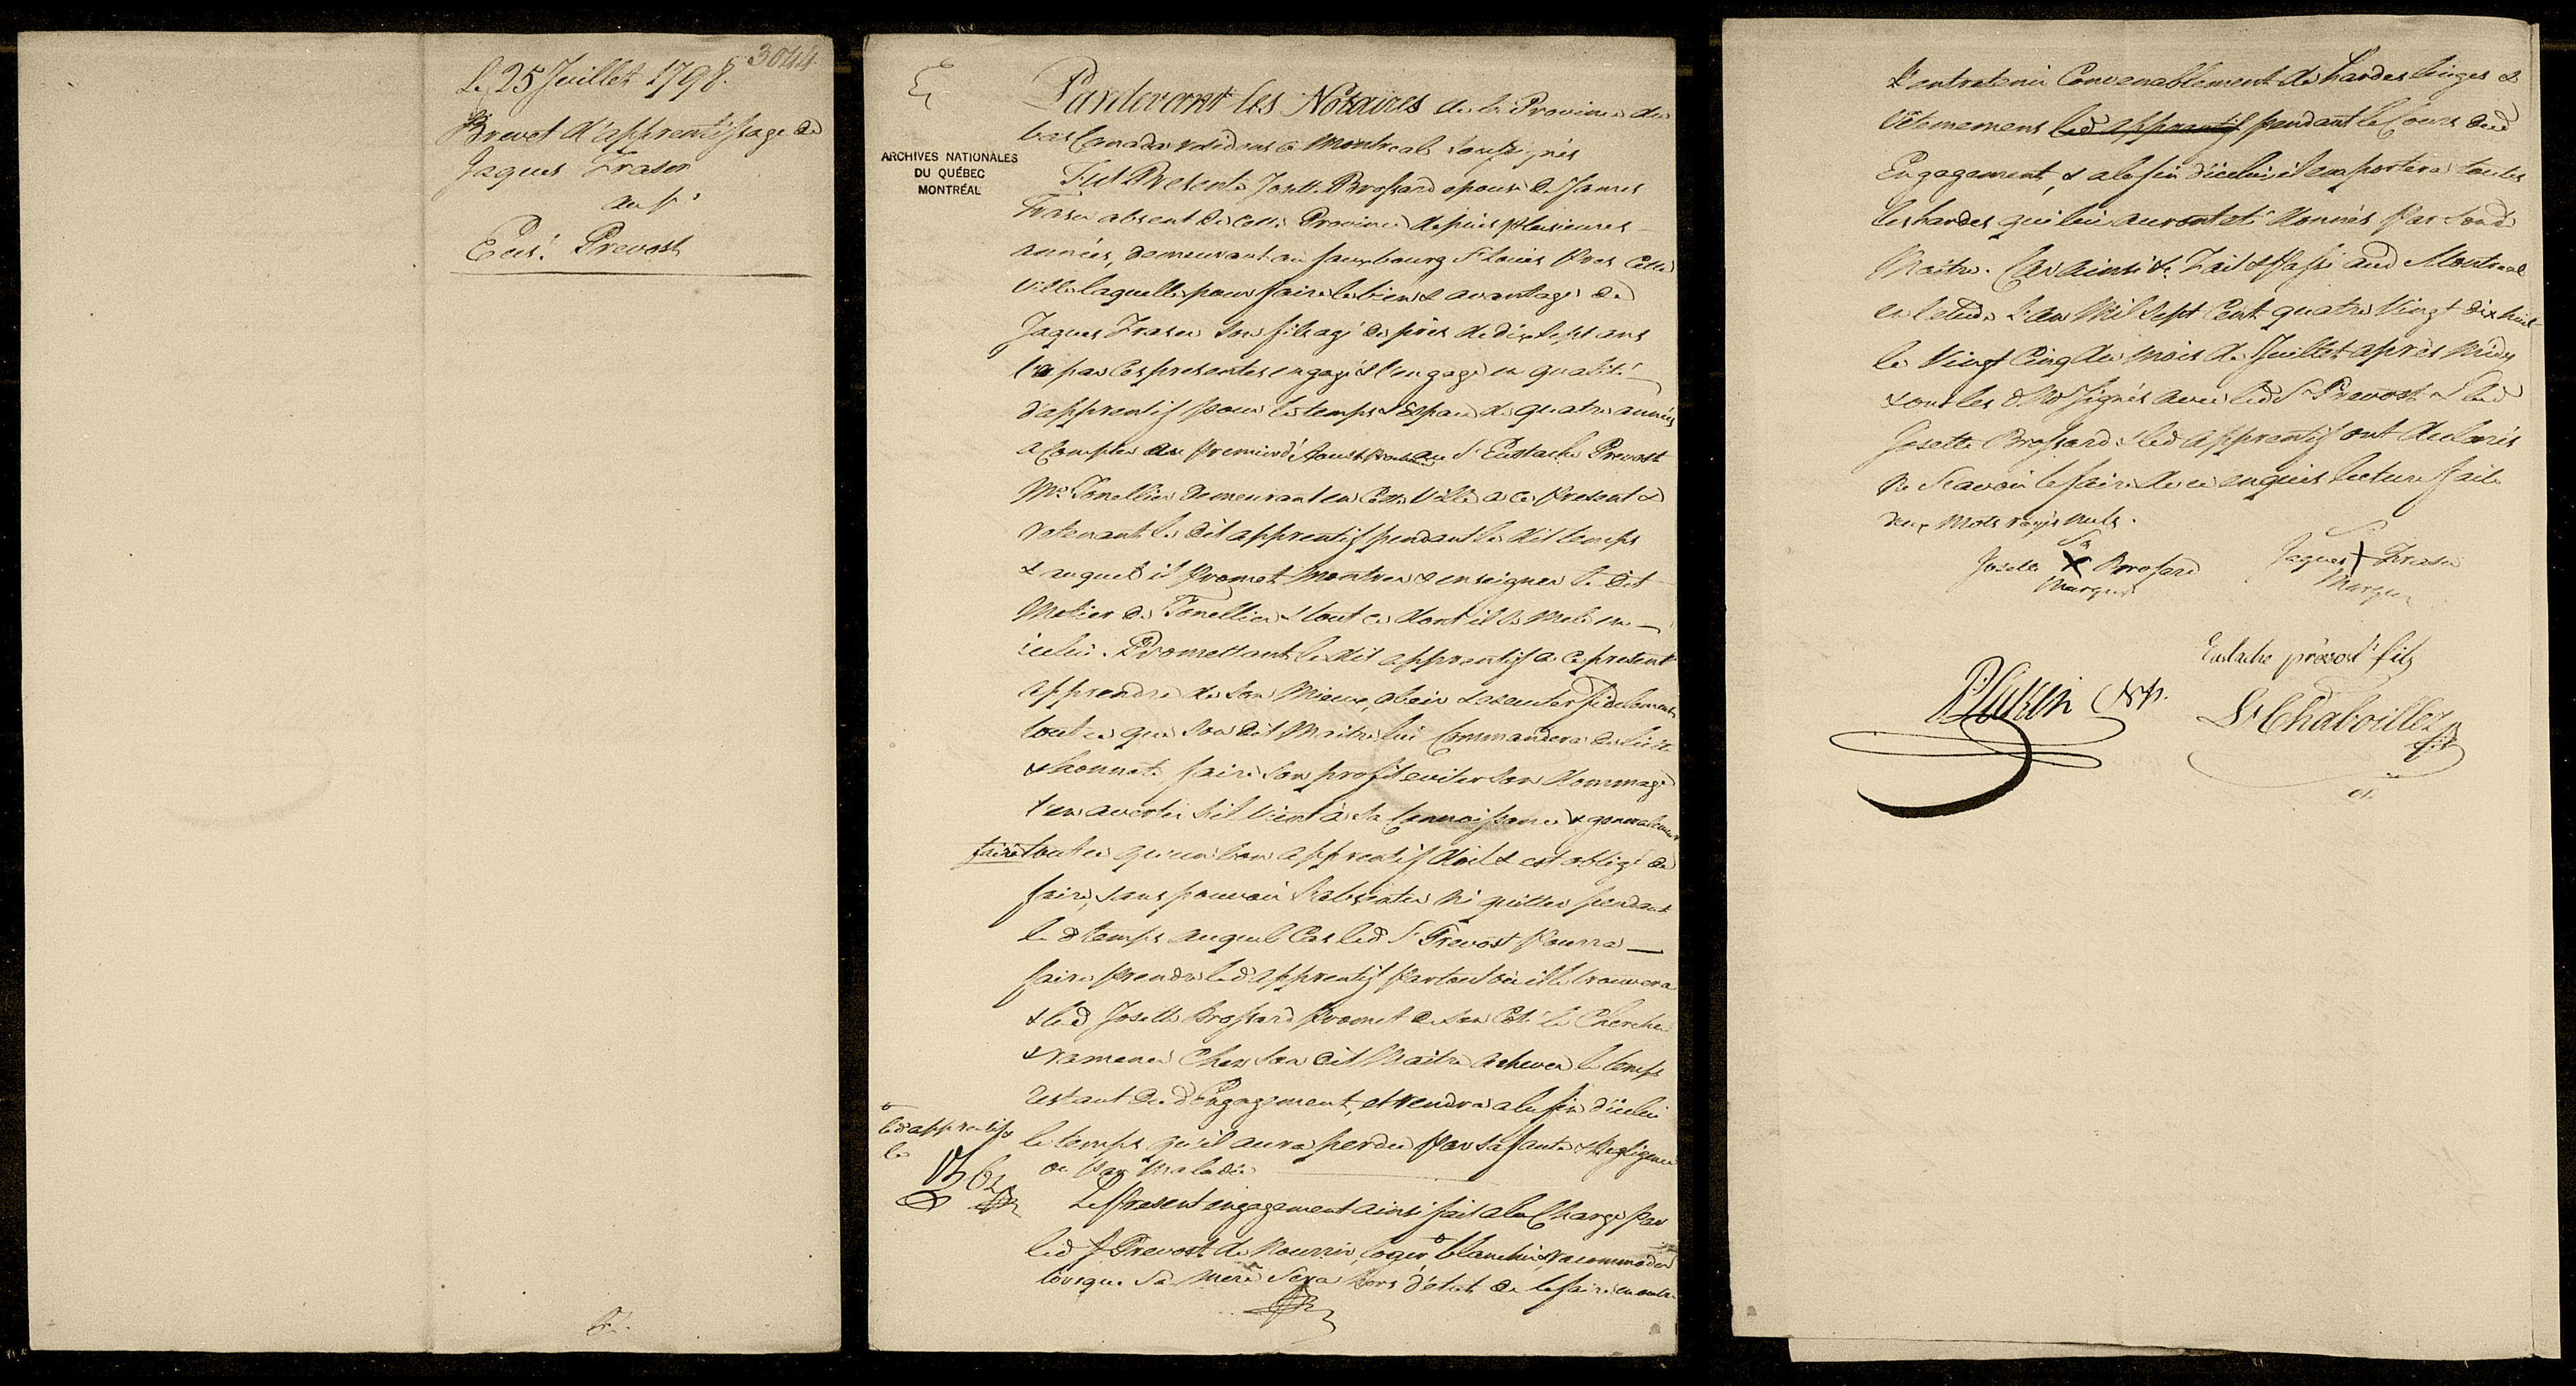 3044
Le 25 Juillet 1798.
Brevet d'apprentissage de
Jaques Fraser
au Sr
Eus. Prevost
ARCHIVES NATIONALES
DU QUÉBEC
MONTRÉAL
Pardevant les Notaires de la Province du
bas Canada residens a Montreal soussignés
Fut Presente Josette Brossard epouse de James
Fraser absent de cette Province depuis plusieures
années, demeurant au fauxbourg St Louis pres cette
Ville laquelle pour faire le bien & avantage de
Jaques Fraser son fils agé de près de dix sept ans
l'a par ces presentes engagé & l'engage en qualité
d'apprentif pour le temps & Espace de quatre années
a Compter du premier d'Aoust prochain au Sr Eustache Prevost
Me Tonellier demeurant en cette Ville a ce present &
retenant le dit apprentif pendant le dit temps
& auquel il promet montrer & enseigner le dit
Metier de Tonellier & tout ce dont il se mele en
icelui. Promettant le dit apprentif a ce present
apprendre de son Mieux, obeir & executer fidelement
tout ce que son dit Maitre lui Commandera de licite
& honnete faire son profit eviter son dommage
l'en avertir s'il vient à sa Connoissance & generalement
faire tout ce qu'un bon apprentif doit & est obligé de
faire, sans pouvoir s'absenter ni quitter pendant
le d temps auquel Cas led Sr Prevost pourra
faire prendre led apprentif partout où il le trouvera
& led Josette Brossard promet de son Coté le Chercher
& ramener Chez son dit Maitre achever le temps
restant du d Engagement, et rendra a la fin d'icelui
le temps qu'il aura perdu par sa faute & Negligence
ou par Maladie
led apprentif
le
Le present engagement ainsi fait a la Charge par
led Sr Prevost de Nourrir, loger blanchir & racommoder
lorsque sa mere sera hors d'etat de le faire en outre
L'entretenir Convenablement de hardes linges &
vêtemens led apprentif pendant le Cours dud
Engagement, & a la fin d'icelui il emportera toutes
les hardes qui lui auront eté donnés par sond
Maitre. Car ainsi &c. Fait & Passé aud Montreal
en l'etude L'an Mil Sept Cent quatre Vingt dix huit
le Vingt Cinq du mois de Juillet après midy
& ont les d Nos signés avec led Sr Prevost & lad
Josette Brossard & led apprentif ont declarés
ne Scavoir le faire de ce enquis lecture faite
deux mots rayés nuls.
Sa
Josette X Brossard
Marque
Sa
Jaques X Fraser
Marque
Eustache prévost fils
P. Lukin Notr.
Ls Chaboillez